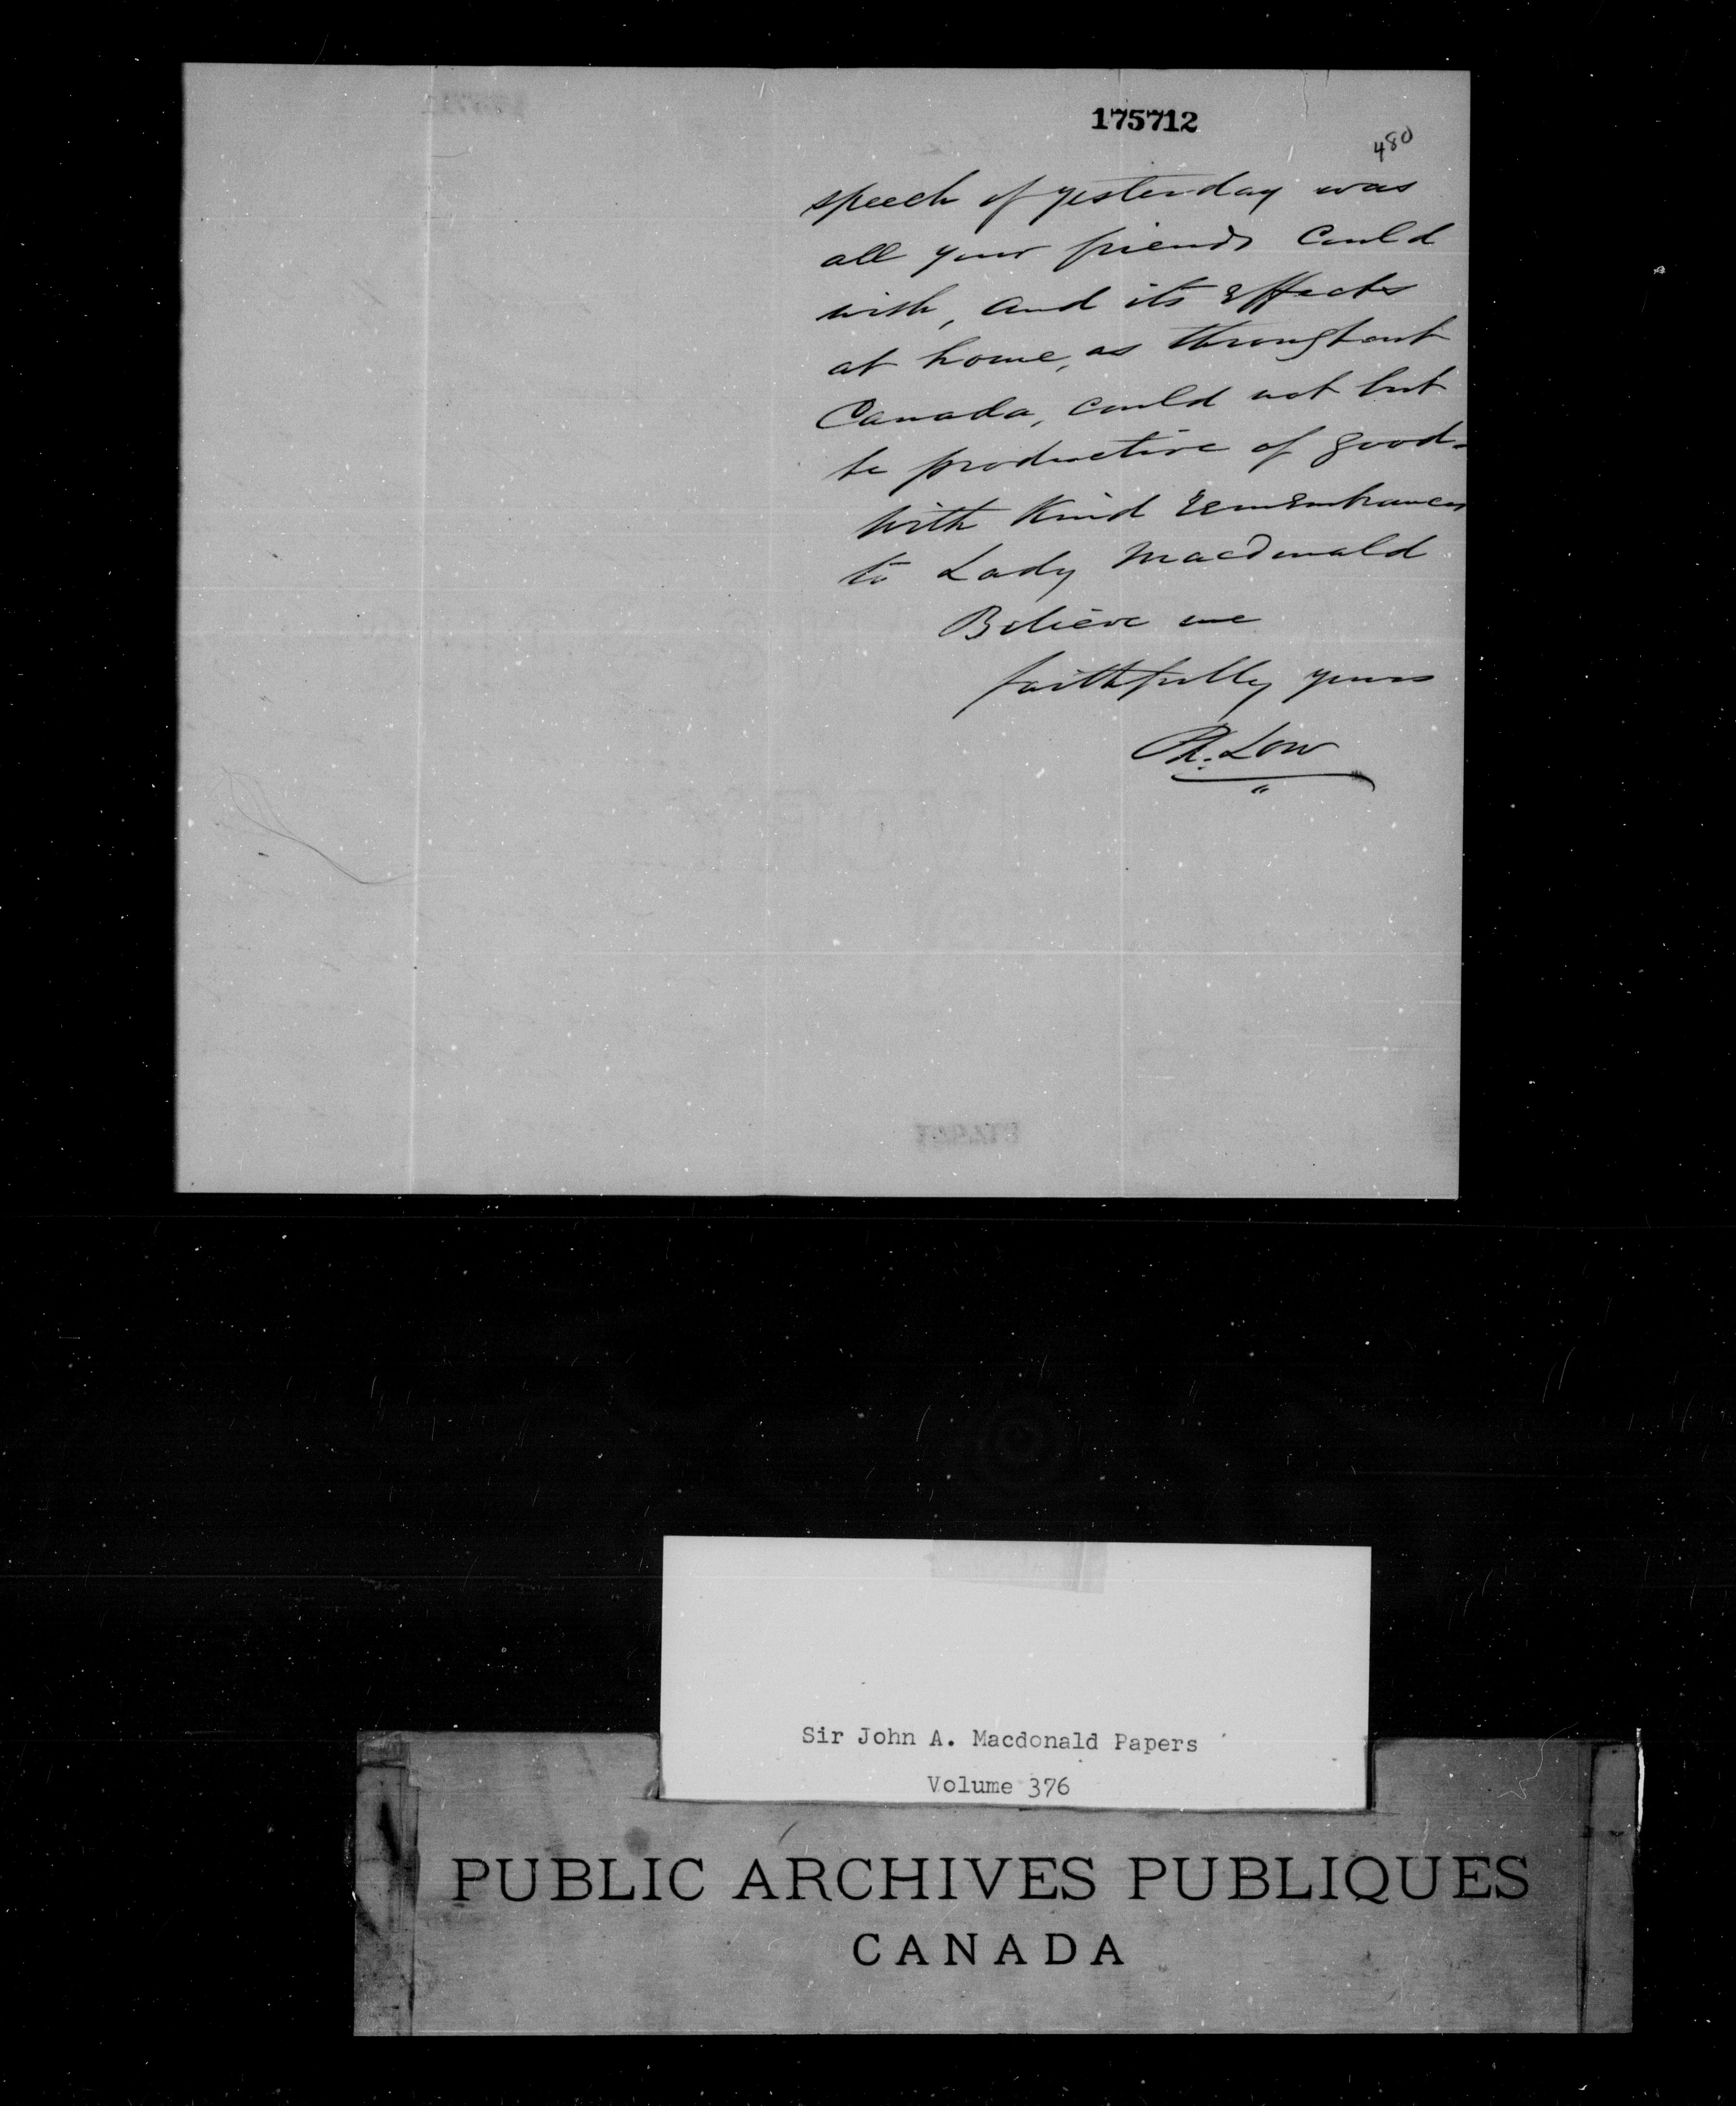 175712
480
speech of yesterday was
all your friends could
wish, and its effects
at home, as throughout
Canada, could not but
be productive of good.
With Kind remembrances
to Lady Macdonald
Believe me
faithfully yours
Low
Sir John A. Macdonald Papers
Volume 376
PUBLIC ARCHIVES PUBLIQUES
CANADA